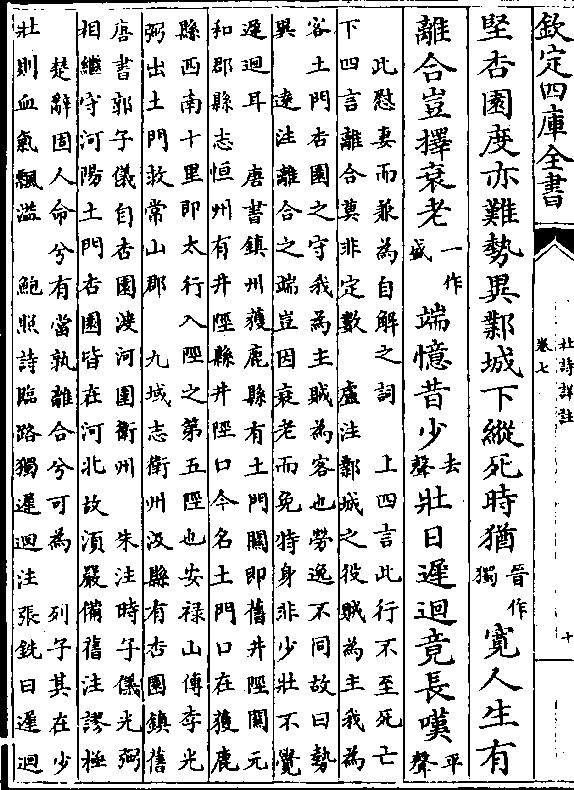 欽定四庫全書
杜詩詳註
卷七
十
堅杏園度亦難勢異鄴城下縱死時猶晉作獨寛人生有
離合豈擇衰老一作盛端憶昔少去聲壯日遲迴竟長嘆平聲
此慰妻而兼為自解之詞　上四言此行不至死亡
下四言離合莫非定數　盧注鄴城之役賊為主我為
客土門杏園之守我為主賊為客也勞逸不同故曰勢
異　遠注離合之端豈因衰老而免特身非少壯不覺
遲迴耳　唐書鎮州獲鹿縣有土門關即舊井陘關元
和郡縣志恒州有井陘縣井陘口今名土門口在獲鹿
縣西南十里即太行入陘之第五陘也安禄山傳李光
弼出土門救常山郡　九域志衛州汲縣有杏園鎮舊
唐書郭子儀自杏園渡河圍衛州　朱注時子儀光弼
相繼守河陽土門杏園皆在河北故須嚴備舊注謬極
楚辭固人命兮有當孰離合兮可為　列子其在少
壯則血氣飄溢　鮑照詩臨路獨遲迴注張銑曰遲迴